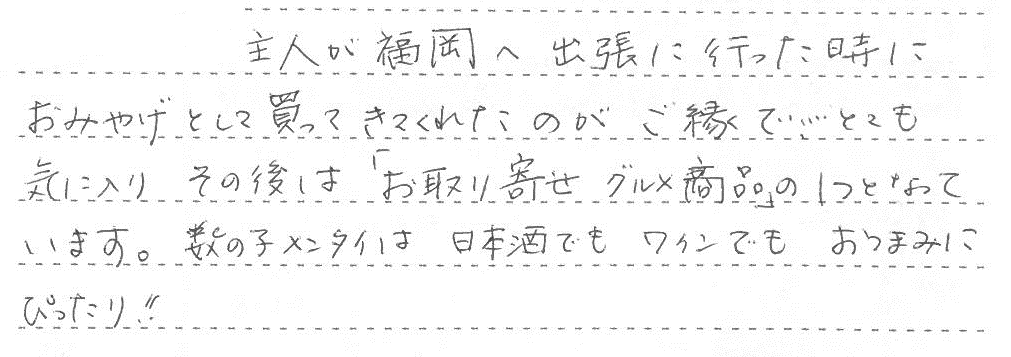 主人が福岡へ出張に行った時に
おみやげとして買ってきてくれたのがご縁で……とても
気に入り その後は「お取り寄せグルメ商品」の1つとなって
います。数の子メンタイは 日本酒でも ワインでも おつまみに
ぴったり!!